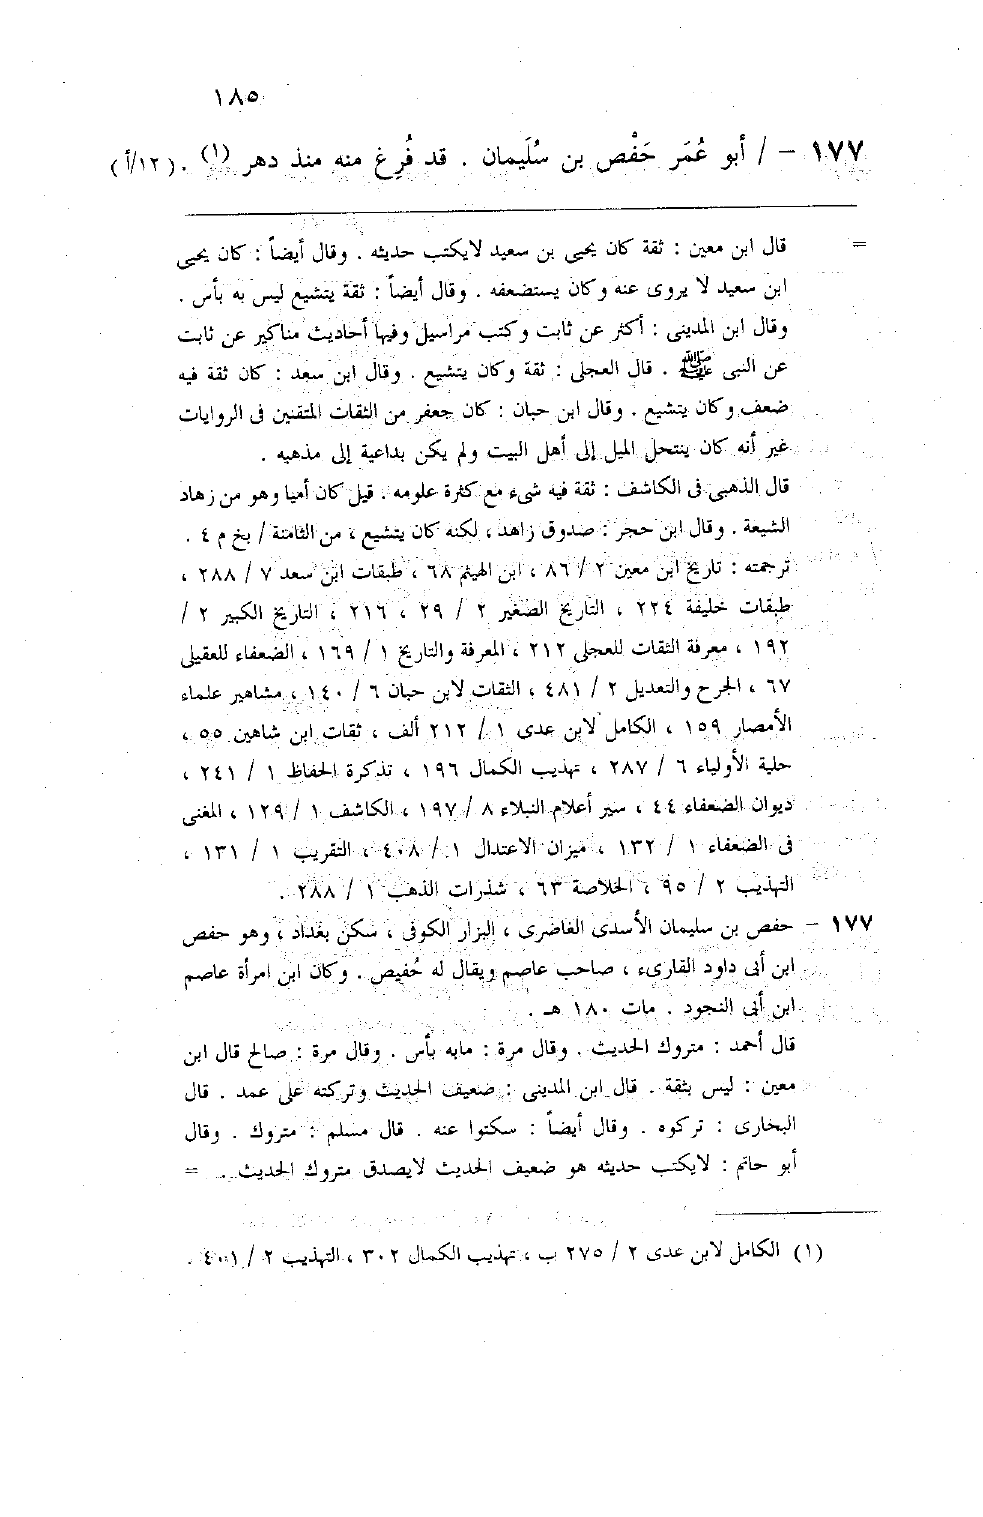 ١٨٥
١٧٧ - / أبو عُمَر حَفْص بن سُلَيمان . قد فُرِغ منه منذ دهر (١) . (١٢/أ)
= قال ابن معين : ثقة كان يحيى بن سعيد لايكتب حديثه . وقال أيضاً : كان يحيى
ابن سعيد لا يروى عنه وكان يستضعفه . وقال أيضاً : ثقة يتشيع ليس به بأس .
وقال ابن المدينى : أكثر عن ثابت وكتب مراسيل وفيها أحاديث مناكير عن ثابت
عن النبى ﷺ . قال العجلى : ثقة وكان يتشيع . وقال ابن سعد : كان ثقة فيه
ضعف وكان يتشيع . وقال ابن حبان : كان جعفر من الثقات المتقنين فى الروايات
غير أنه كان ينتحل الميل إلى أهل البيت ولم يكن بداعية إلى مذهبه .
قال الذهبى فى الكاشف : ثقة فيه شىء مع كثرة علومه . قيل كان أميا وهو من زهاد
الشيعة . وقال ابن حجر : صدوق زاهد ، لكنه كان يتشيع ، من الثامنة / بخ م ٤ .
ترجمته : تاريخ ابن معين ٢ / ٨٦ ، ابن الهيثم ٦٨ ، طبقات ابن سعد ٧ / ٢٨٨ ،
طبقات خليفة ٢٢٤ ، التاريخ الصغير ٢ / ٢٩ ، ٢١٦ ، التاريخ الكبير ٢ /
١٩٢ ، معرفة الثقات للعجلى ٢١٢ ، المعرفة والتاريخ ١ / ١٦٩ ، الضعفاء للعقيلى
٦٧ ، الجرح والتعديل ٢ / ٤٨١ ، الثقات لابن حبان ٦ / ١٤٠ ، مشاهير علماء
الأمصار ١٥٩ ، الكامل لابن عدى ١ / ٢١٢ ألف ، ثقات ابن شاهين ٥٥ ،
حلية الأولياء ٦ / ٢٨٧ ، تهذيب الكمال ١٩٦ ، تذكرة الحفاظ ١ / ٢٤١ ،
ديوان الضعفاء ٤٤ ، سير أعلام النبلاء ٨ / ١٩٧ ، الكاشف ١ / ١٢٩ ، المغنى
فى الضعفاء ١ / ١٣٢ ، ميزان الاعتدال ١ / ٤٠٨ ، التقريب ١ / ١٣١ ،
التهذيب ٢ / ٩٥ ، الخلاصة ٦٣ ، شذرات الذهب ١ / ٢٨٨ .
١٧٧ - حفص بن سليمان الأسدى الغاضرى ، البزار الكوفى ، سكن بغداد ، وهو حفص
ابن أبى داود القارىء ، صاحب عاصم ويقال له حُفيص . وكان ابن امرأة عاصم
ابن أبى النجود . مات ١٨٠ هـ .
قال أحمد : متروك الحديث . وقال مرة : مابه بأس . وقال مرة : صالح قال ابن
معين : ليس بثقة . قال ابن المدينى : ضعيف الحديث وتركته على عمد . قال
البخارى : تركوه . وقال أيضاً : سكتوا عنه . قال مسلم : متروك . وقال
أبو حاتم : لايكتب حديثه هو ضعيف الحديث لايصدق متروك الحديث . =
(١) الكامل لابن عدى ٢ / ٢٧٥ ب ، تهذيب الكمال ٣٠٢ ، التهذيب ٢ / ٤٠١ .